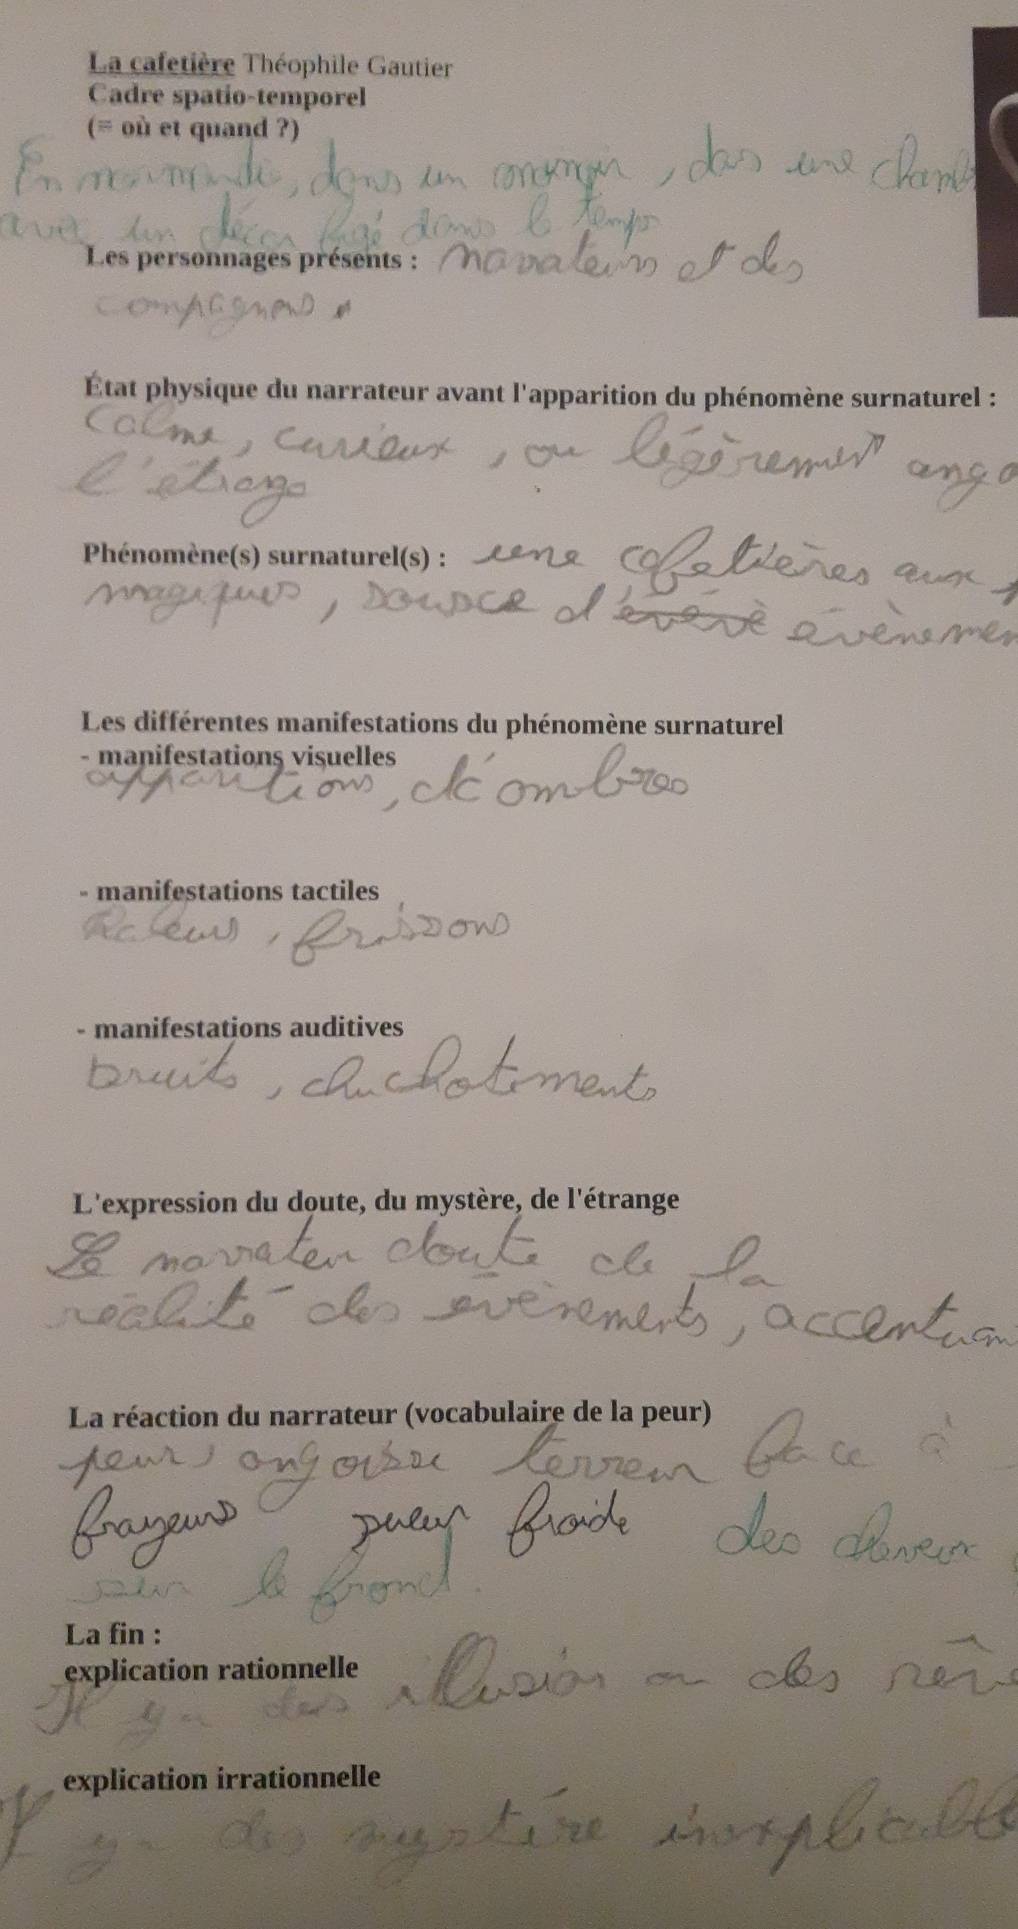 La cafetière Théophile Gautier
Cadre spatio-temporel
(= où et quand ?)
En normandie, dans un manoir, dans une chamb
avec un décor figé dans le temps
Les personnages présents : narrateurs et des
compagnons.
État physique du narrateur avant l'apparition du phénomène surnaturel :
Calme, curieux, ou légèrement ango
l'étrange
Phénomène(s) surnaturel(s) : une cafetières aux
magiques, source d'évévè évènemen
Les différentes manifestations du phénomène surnaturel
- manifestations visuelles
apparitions, d'ombres
- manifestations tactiles
frissons
- manifestations auditives
bruits, chuchotements
L'expression du doute, du mystère, de l'étrange
Le narrateu doute de la
réalité des évènements, accentuan
La réaction du narrateur (vocabulaire de la peur)
peur, angoisse terreur face à
frayeurs sueur froide des cheveux
sur le frond.
La fin :
explication rationnelle
Il y a des illusion ou des rêve
explication irrationnelle
Il y a des mystère inexplicable